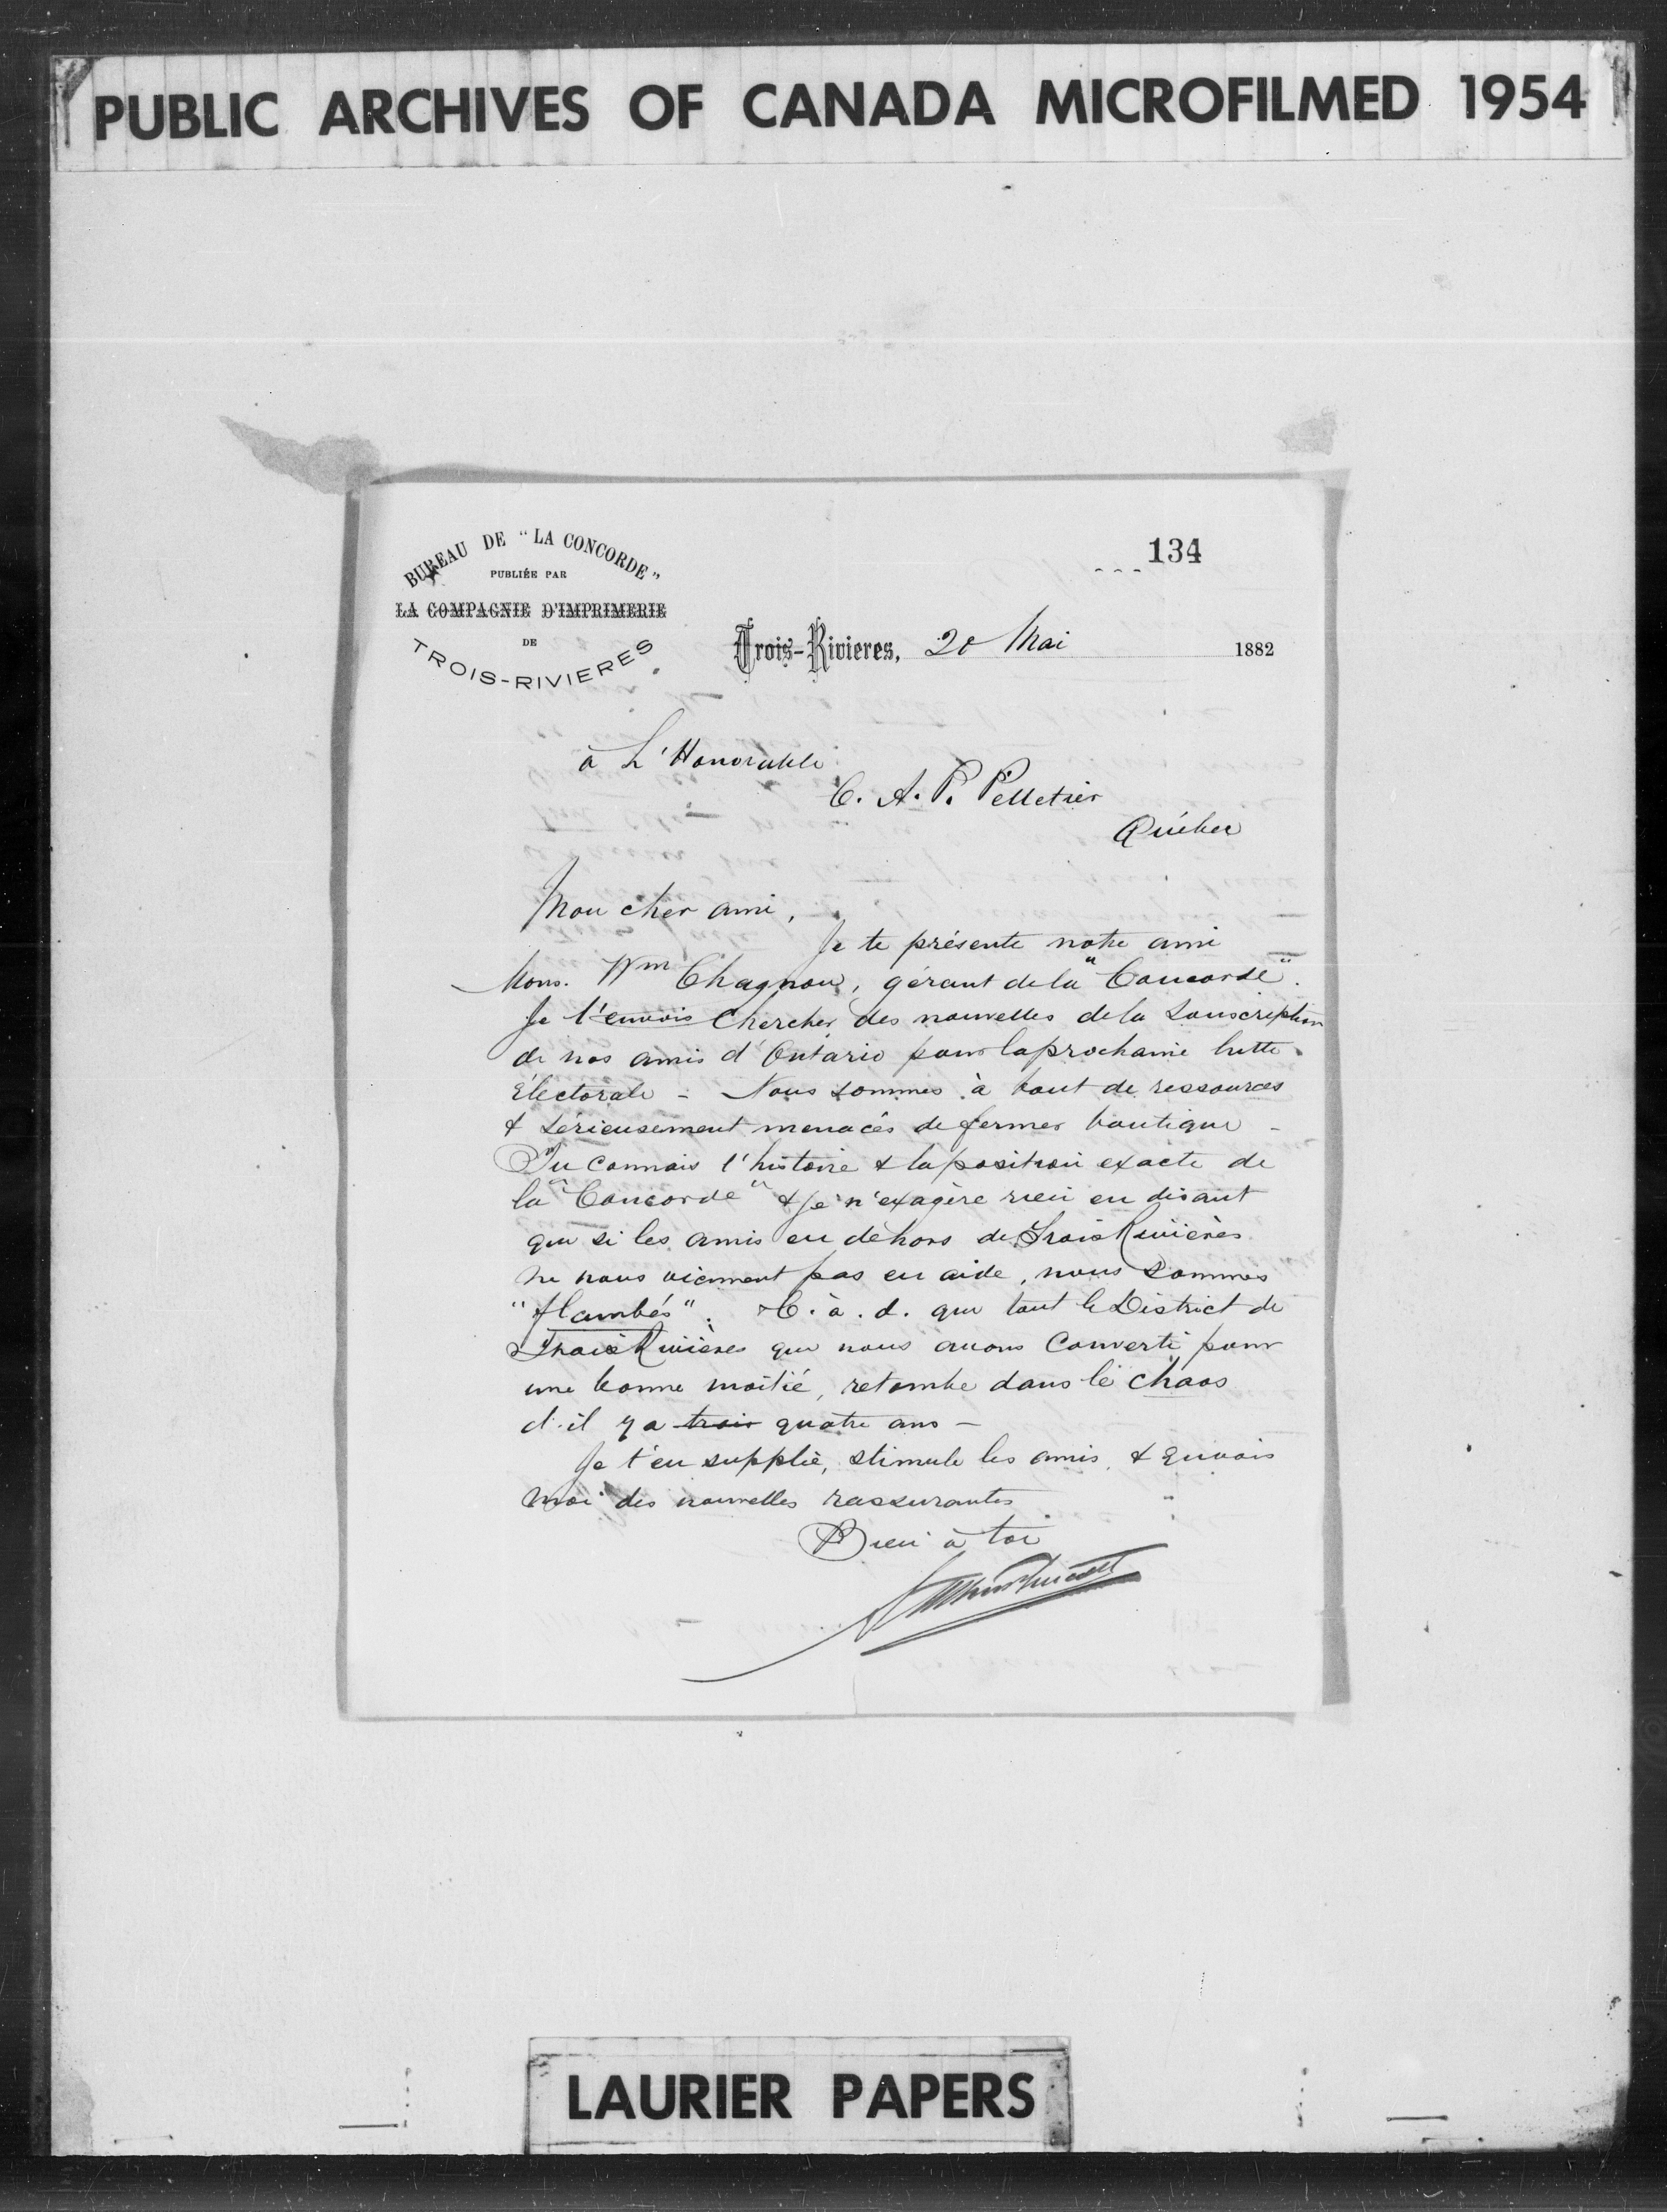 PUBLIC ARCHIVES OF CANADA MICROFILMED 1954
134
BUREAU DE "LA CONCORDE"
PUBLIÉE PAR
LA COMPAGNIE D'IMPRIMERIE
DE
TROIS-RIVIERES
Trois-Rivieres, 20 Mai 1882
à L'Honorable
C. A. P. Pelletier
Québec
Mon cher ami,
Je te présente notre ami
Mons. Wm Chagnon, gérant de la "Concorde".
Je l'envois chercher des nouvelles de la Souscription
de nos amis d'Ontario pour la prochaine lutte
Electorale - Nous sommes à bout de ressources
& sérieusement menacés de fermer boutique -
Tu connais l'histoire & la position exacte de
la "Concorde" & je n'exagère rien en disant
que si les amis en dehors de Trois Rivières
ne nous viennent pas en aide, nous sommes
"flambés". C. à. d. que tout le District de
Trois Rivières que nous avons converti pour
une bonne moitié, retombe dans le chaos
d'il y a trois quatre ans -
Je t'en supplie, stimule les amis, & envois
moi des nouvelles rassurantes
Bien à toi
LAURIER PAPERS